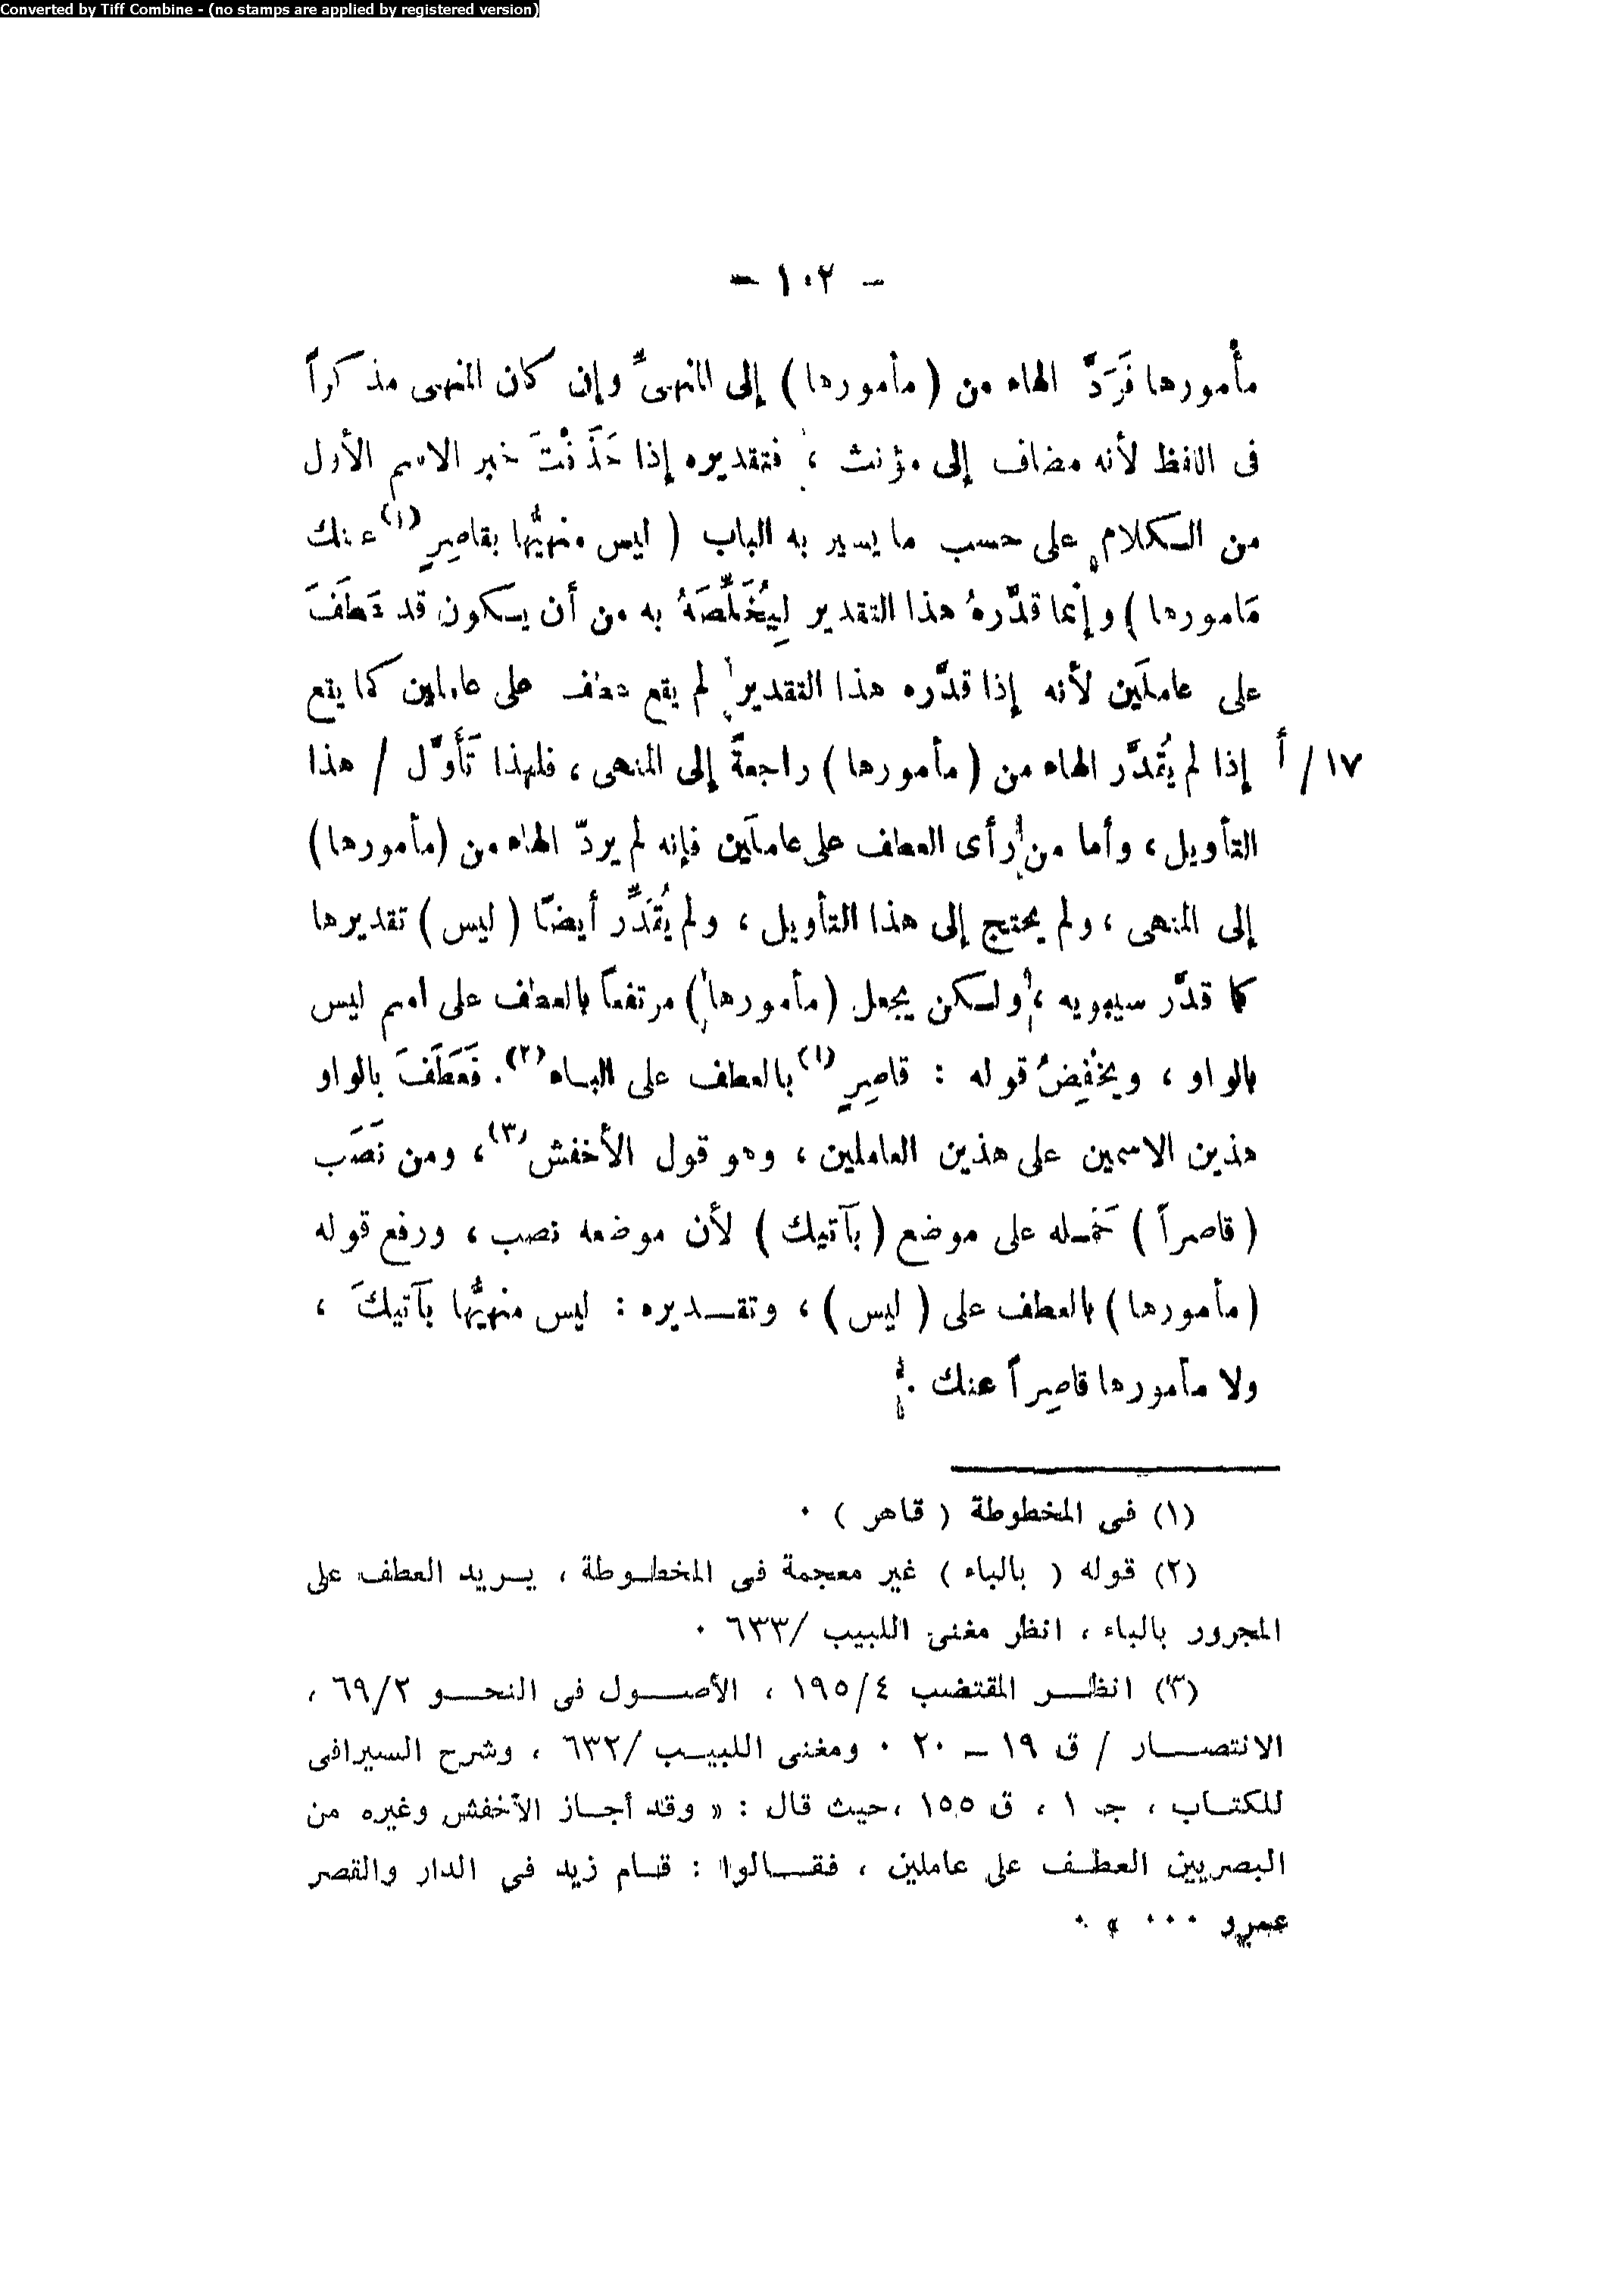 Converted by Tiff Combine - (no stamps are applied by registered version)
– ١٠٢ –
مأمورها فَرَدَّ الهاء من ( مأمورها ) إلى المنهىِّ وإن كان المنهى مذكراً
فى اللفظ لأنه مضاف إلى مؤنث ، فتقديره إذا حَذَفْتَ خبر الاسم الأول
من الكلام على حسب ما يسير به الباب ( ليس منهيُّها بقاصِرٍ (١) عنك
مَامورها ) وإنما قدَّرهُ هذا التقدير لِيُخَلِّصَهُ به من أن يكون قد عَطَفَ
على عاملَين لأنه إذا قدَّره هذا التقدير لم يقع عطف على عاملين كما يقع
١٧ / أ إذا لم يُقدَّر الهاء من ( مأمورها ) راجعةً إلى المنهى ، فلهذا تَأَوَّل / هذا
التأويل ، وأما من رأى العطف على عاملَين فإنه لم يردّ الهاء من (مأمورها)
إلى المنهى ، ولم يحتج إلى هذا التأويل ، ولم يُقَدِّر أيضاً ( ليس ) تقديرها
كما قدَّر سيبويه ، ولكن يجعل (مأمورها) مرتفعاً بالعطف على اسم ليس
بالواو ، ويخْفِضُ قوله : قاصِرٍ (١) بالعطف على الباء (٢) . فَعَطَفَ بالواو
هذين الاسمين على هذين العاملين ، وهو قول الأخفش (٣) ، ومن نَصَب
( قاصراً ) حَمَله على موضع ( بآتيك ) لأن موضعه نصب ، ورفع قوله
(مأمورها) بالعطف على ( ليس ) ، وتقديره : ليس منهيُّها بآتيكَ ،
ولا مأمورها قاصِراً عنك .
(١) فى المخطوطة ( قاهر ) .
(٢) قوله ( بالباء ) غير معجمة فى المخطوطة ، يريد العطف على
المجرور بالباء ، انظر مغنى اللبيب /٦٣٣ .
(٣) انظر المقتضب ١٩٥/٤ ، الأصول فى النحو ٦٩/٢ ،
الانتصار / ق ١٩ – ٢٠ . ومغنى اللبيب /٦٣٢ ، وشرح السيرافى
للكتاب ، جـ ١ ، ق ١٥٥ ، حيث قال : « وقد أجاز الأخفش وغيره من
البصريين العطف على عاملين ، فقالوا : قام زيد فى الدار والقصر
عمرو ... » .